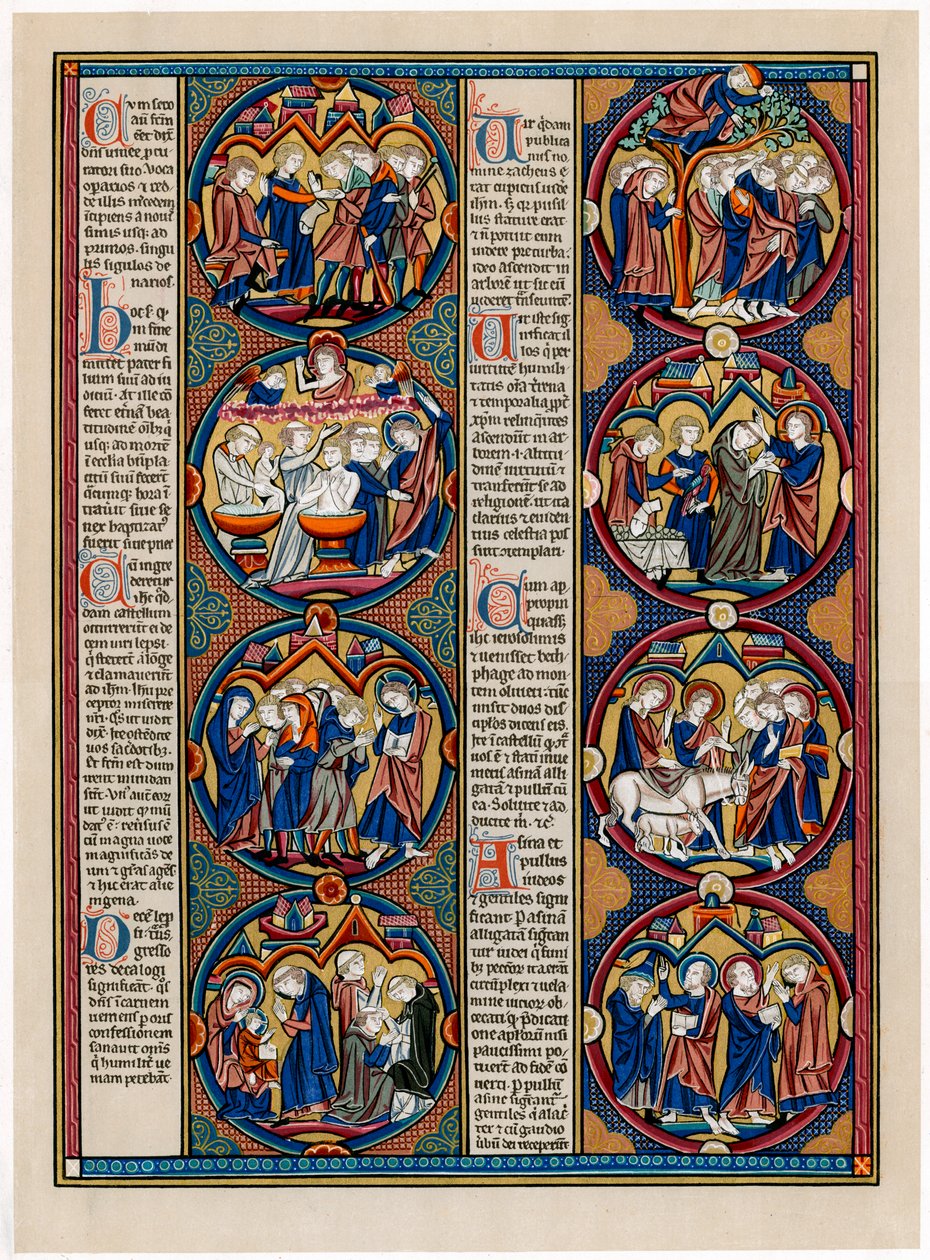 Cum sero
aut̄ fc̄m
eēt dix̄
dn̄s vinee p̄cu
ratori suo. voca
op̄arios ⁊ red
de illis m̄cedem
īcipiens a noui
simis usq; ad
primos. singu
lis sigulos de
narios.
hoc ē. q̄.
in fine
mūdi
mittet pater fi
lium suū ad iu
dicium. ⁊t ille cō
feret et̄nā bea
titudinē om̄ib; q̄
usq; ad mortē
ī ecclīa b̄n̄pla
citū suū fecerīt
q̄cūq; hora ī
trauīt siue se
nex baptizat᷒
fuerit siue puer
Cū ingre
deretur
ihc q̄d
dam castellum
occurrerūt ei de
cem uiri lepsi.
q̄ steterūt a longe
⁊ clamauerūt
ad ih̄m. Ih̄u pre
ceptor miserere
nr̄i. q̄s ut uidit
dix̄. Ite ostendite
uos sac̄dotib;.
Et fc̄m est dum
irent mundati
st̄. Vn᷒ aut̄ eor̄
ut uidit q̄ mū
dat᷒ ē. reusus ē
cū magna uoce
magnificās de
um ⁊ gr̄as agēs
⁊ hic erat alie
nigena.
Decē lep
si. tn̄s
gresso
res decalogi
significāt. q̄s
dn̄s ī carnem
ueniens p̄ oris
confessionem
sanauit om̄s
q̄ humilit̄ ue
niam petebāt.
Vir q̄dam
publica
nus no
mine zacheus e
rat cupiens uide
ih̄m. s; q̄ pusil
lus stature erat
⁊ n̄ potuit eum
uidere pre turba.
ideo ascendit in
arborē ut sic eū
uideret tn̄seuntē.
Vir iste sig
nificat il
los q̄ per
uirtutē humili
tatis om̄ia t̄rena
⁊ temporalia ppt̄
xp̄m relinquūtes
ascendūt in ar
borem .i. altitu
dinē uirtutū ⁊
tn̄sferūt se ad
religionē. ut ita
clarius ⁊ euiden
tius celestia pos
sint ɔtemplari.
Cum ap
propin
quass;
ihc ierosolimis
⁊ uenisset beth
phage ad mon
tem oliueti. tūc
misit duos dis
cip̄los dicens eis.
Ite ī castellū q̄ ɔt̄
uos ē ⁊ statī inue
nietis asinā alli
gatā ⁊ pullū cū
ea. Soluite ⁊ ad
ducite m̄. ⁊c̄.
Asina et
pullus
iudeos
⁊ gentiles signi
ficant. P asinā
alligatam sig̅can
tur iudei q̄ funi
b; pecc̄or̄ ita erāt
circūplexi ⁊ uela
mine uicior̄ ob
cecati. q̄ p̄dicati
one ap̄lor̄ū nisi
paucissimi po
tuerūt ad fidē cō
uerti. p pullū
asine sig̅rant̄
gentiles q̄ alac̄
ter ⁊ cū gaudio
ūbū dei receperūt